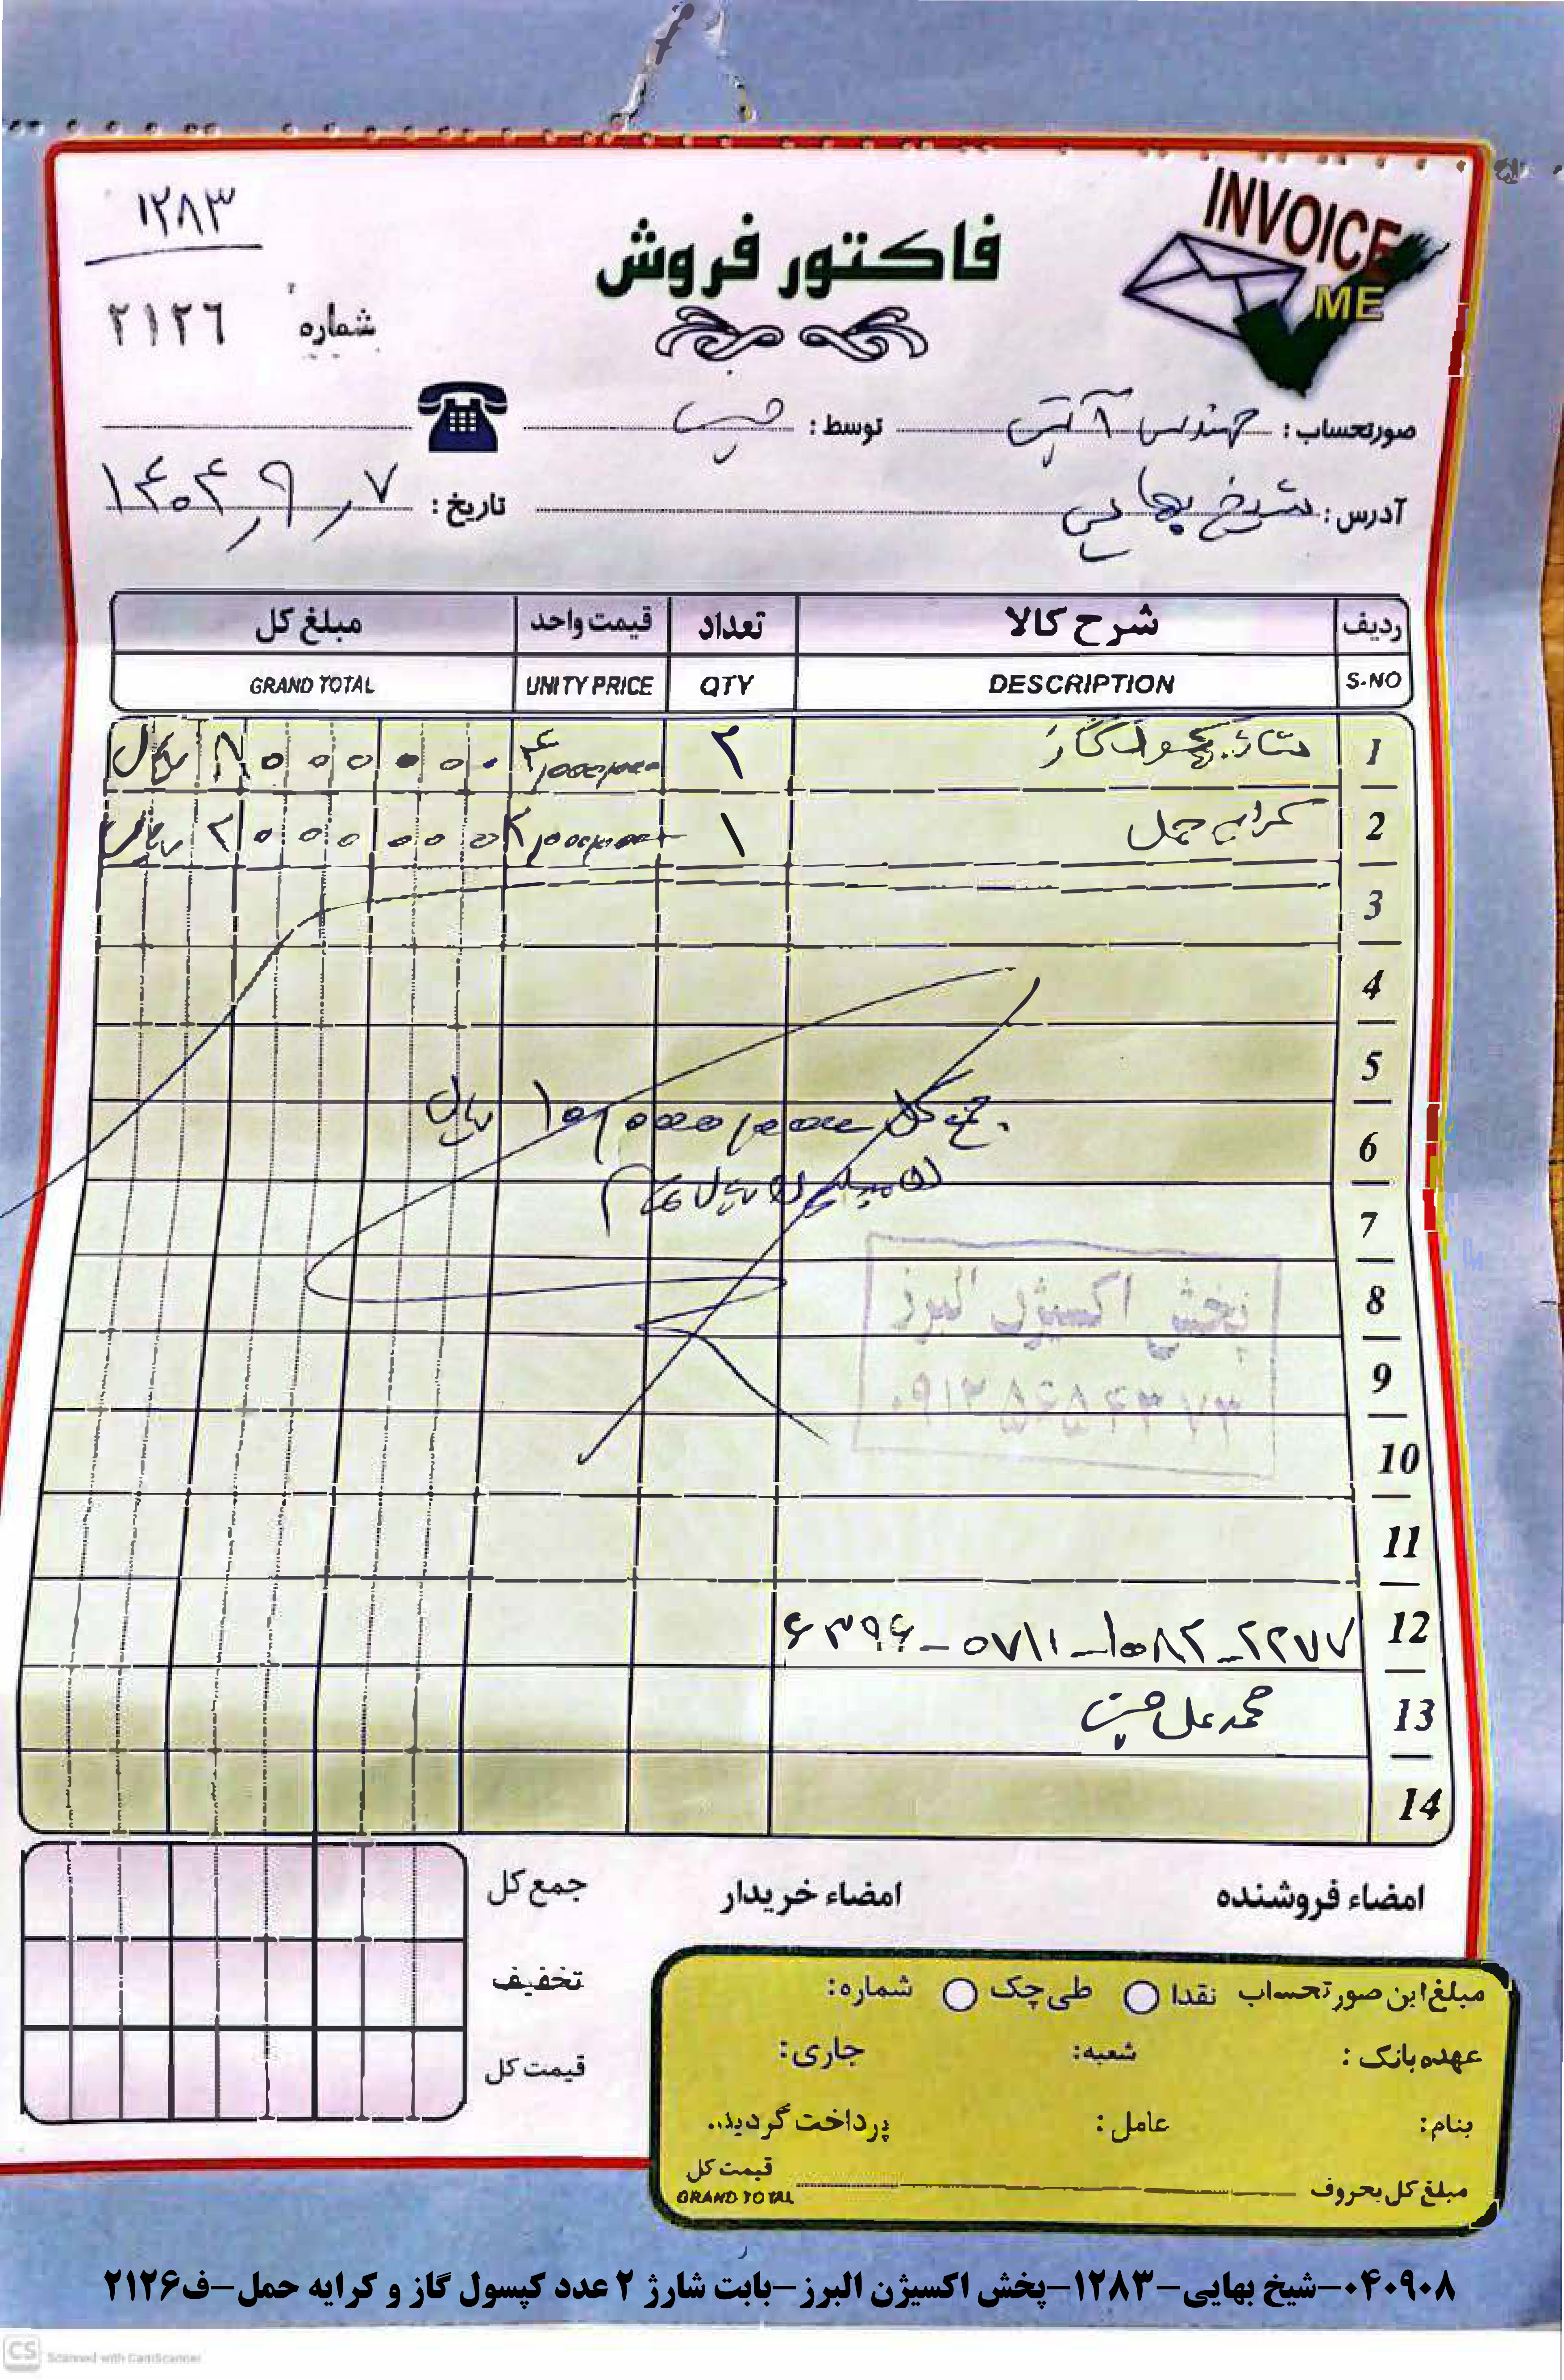 INVOICE
ME
فاکتور فروش
۱۲۸۳
شماره ۲۱۲۶
صورتحساب: مهندس توسط:
آدرس: شیخ بهایی تاریخ: ۱۴۰۴٫۹٫۷
ردیف شرح کالا تعداد قیمت واحد مبلغ کل
S.NO DESCRIPTION QTY UNITY PRICE GRAND TOTAL
1 شارژ کپسول گاز ۲ ۴٫۰۰۰٫۰۰۰ ۸۰۰۰۰۰۰ ریال
2 کرایه حمل ۱ ۲٫۰۰۰٫۰۰۰ ۲۰۰۰۰۰۰ ریال
3
4
5
6 جمع کل ۱۰٫۰۰۰٫۰۰۰ ریال
7
8 پخش اکسیژن البرز
9
10
11
12 ۶۳۹۶-۰۷۱۱-۱۰۸۲-۲۲۷۷
13 محمد علی
14
امضاء فروشنده امضاء خریدار جمع کل
تخفیف
قیمت کل
مبلغ این صورتحساب نقدا طی چک شماره:
عهده بانک: شعبه: جاری:
بنام: عامل: پرداخت گردید..
مبلغ کل بحروف قیمت کل
GRAND TOTAL
۰۴۰۹۰۸-شیخ بهایی-۱۲۸۳-پخش اکسیژن البرز-بابت شارژ ۲ عدد کپسول گاز و کرایه حمل-ف۲۱۲۶
CS Scanned with CamScanner